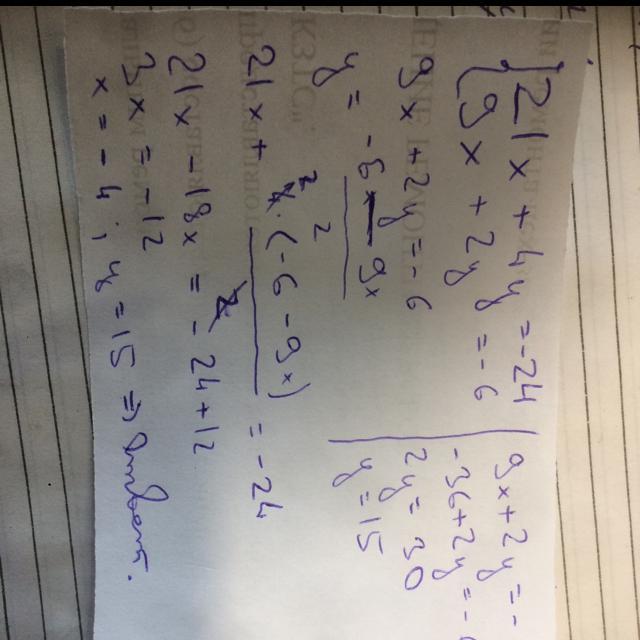 21x + 4y = -24
9x + 2y = -6
9x + 2y = -6
y = -6 - 9x
2
21x + 4 · (-6 - 9x) = -24
2
2
21x - 18x = -24 + 12
3x = -12
x = -4 ; y = 15 =>
9x + 2y = -
-36 + 2y = -6
2y = 30
y = 15